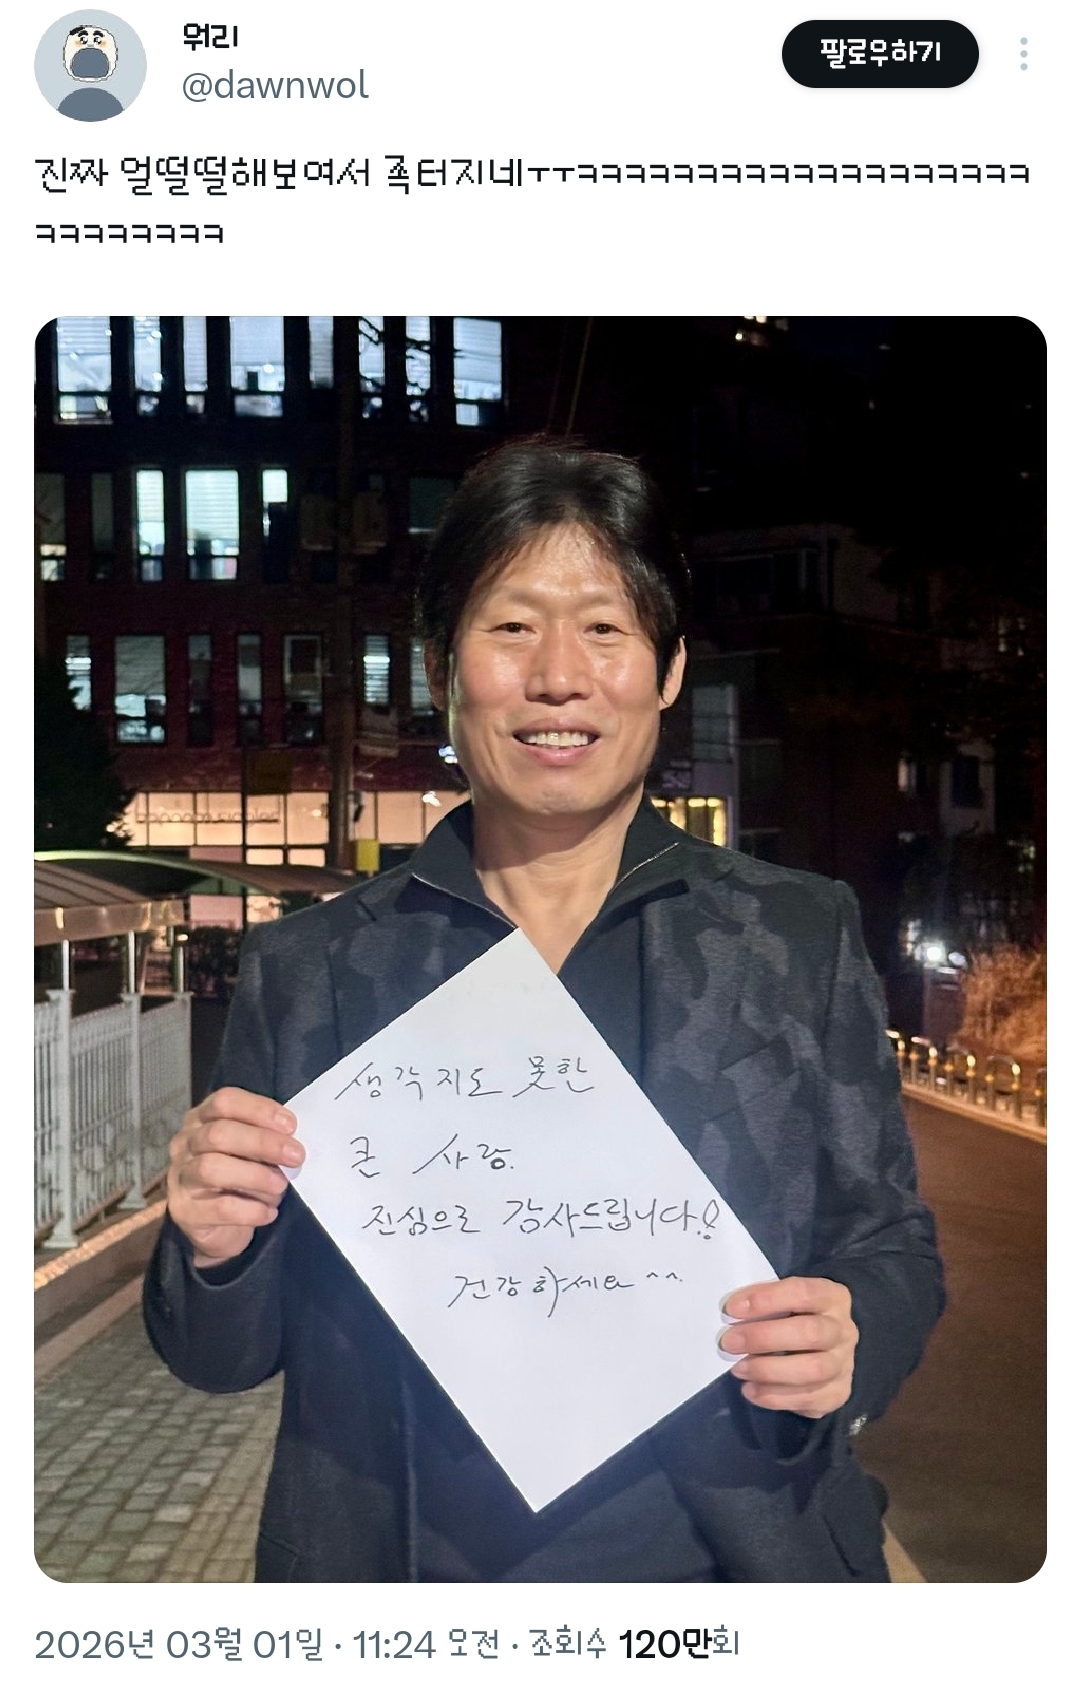 뭐리
@dawnwol
팔로우하기
진짜 얼떨떨해보여서 죡터지네ㅜㅜㅋㅋㅋㅋㅋㅋㅋㅋㅋㅋㅋㅋㅋㅋㅋㅋㅋㅋㅋ
ㅋㅋㅋㅋㅋㅋㅋㅋ
생각지도 못한
큰 사랑.
진심으로 감사드립니다!
건강하세요^^.
2026년 03월 01일 · 11:24 오전 · 조회수 120만회